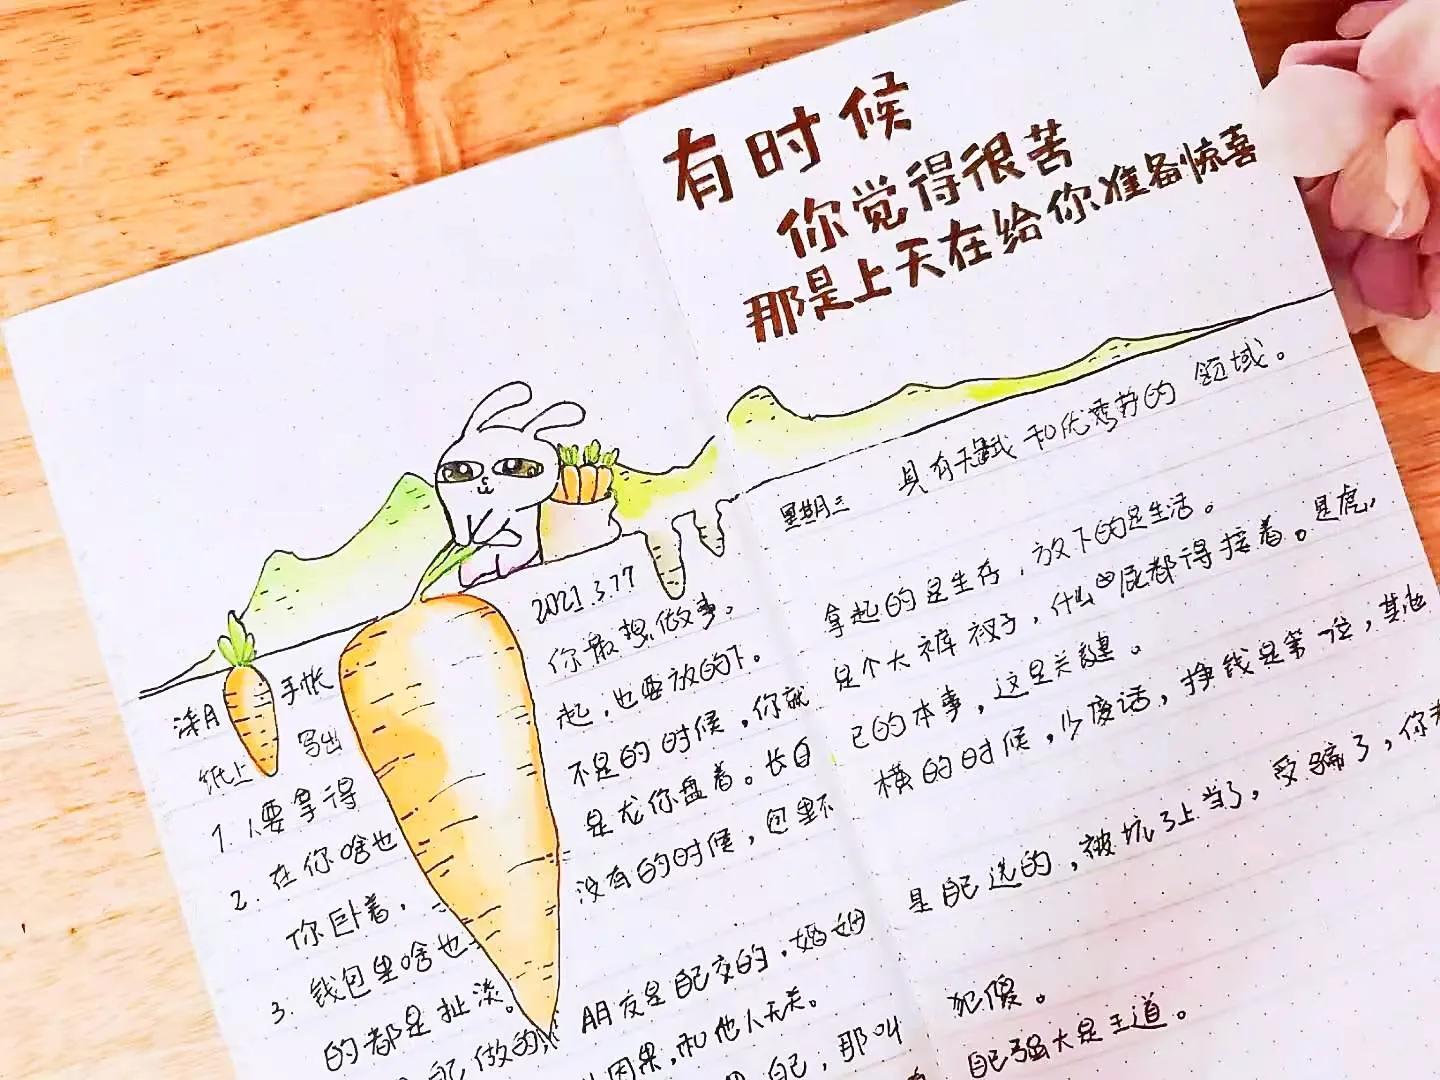 有时候
你觉得很苦
那是上天在给你准备惊喜
2021.3.17 星期三
手帐
纸上 写出 你最想做事，具有天赋 和优秀的 领域。
1、要拿得起，也要放的下。拿起的是生存，放下的是生活。
2. 在你啥也不是的时候，你就是个大裤衩子，什么屁都得接着。是虎，
你卧着，是龙你盘着。长自己的本事，这是关键。
3. 钱包里啥也没有的时候，包里不横的时候，少废话，挣钱是第一位，其他
的都是扯淡。
自己做的，朋友是自己交的，婚姻是自己选的，被坑了上当了，受骗了，你
因果，和他人无关。
自己，那叫犯傻。
自己强大是王道。